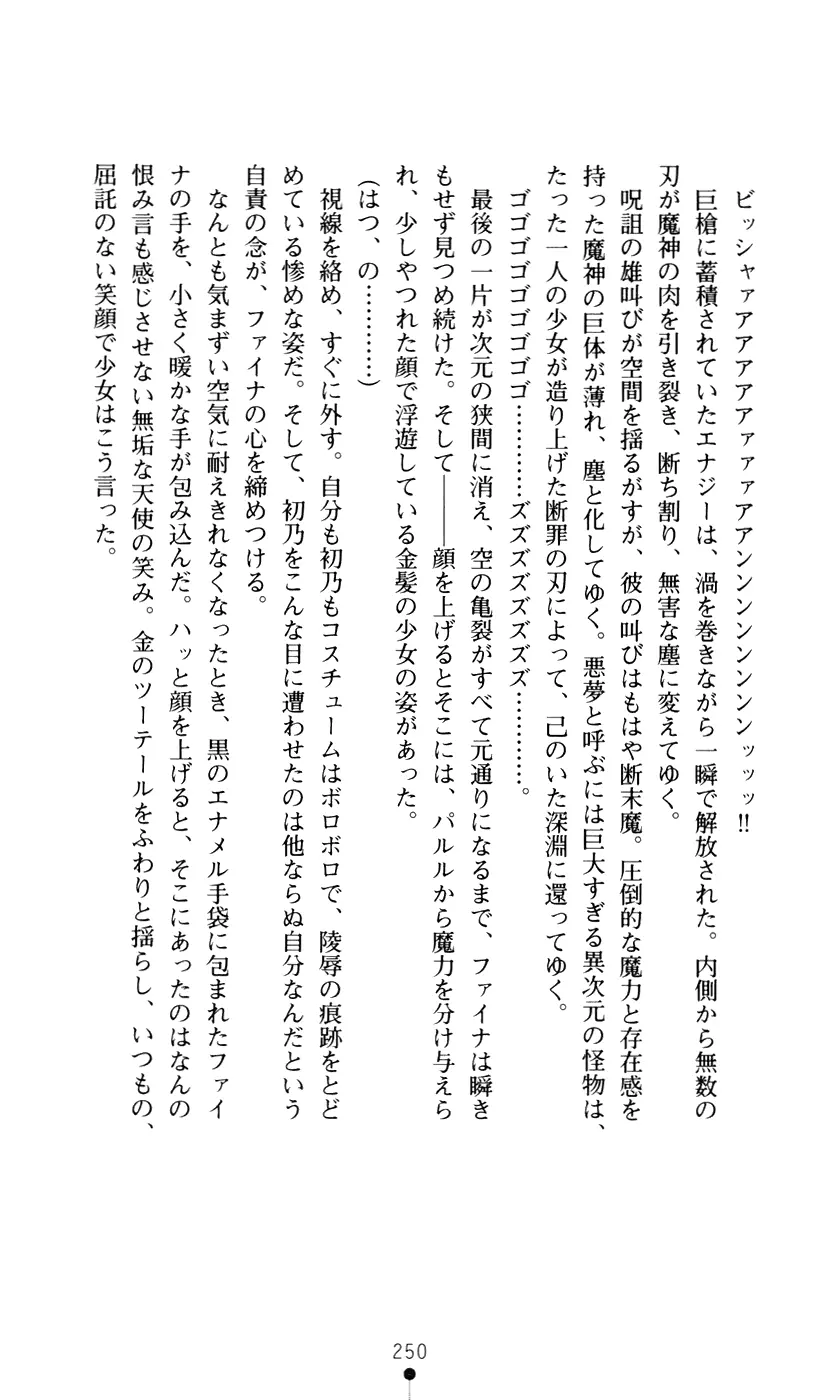 ビッシャァアアアアアァァァアアンンンンンンンンッッッ!!
巨槍に蓄積されていたエナジーは、渦を巻きながら一瞬で解放された。内側から無数の
刃が魔神の肉を引き裂き、断ち割り、無害な塵に変えてゆく。
呪詛の雄叫びが空間を揺るがすが、彼の叫びはもはや断末魔。圧倒的な魔力と存在感を
持った魔神の巨体が薄れ、塵と化してゆく。悪夢と呼ぶには巨大すぎる異次元の怪物は、
たった一人の少女が造り上げた断罪の刃によって、己のいた深淵に還ってゆく。
ゴゴゴゴゴゴゴゴゴ…………ズズズズズズズズ…………。
最後の一片が次元の狭間に消え、空の亀裂がすべて元通りになるまで、ファイナは瞬き
もせず見つめ続けた。そして――顔を上げるとそこには、パルルから魔力を分け与えら
れ、少しやつれた顔で浮遊している金髪の少女の姿があった。
(はつ、の…………)
視線を絡め、すぐに外す。自分も初乃もコスチュームはボロボロで、陵辱の痕跡をとど
めている惨めな姿だ。そして、初乃をこんな目に遭わせたのは他ならぬ自分なんだという
自責の念が、ファイナの心を締めつける。
なんとも気まずい空気に耐えきれなくなったとき、黒のエナメル手袋に包まれたファイ
ナの手を、小さく暖かな手が包み込んだ。ハッと顔を上げると、そこにあったのはなんの
恨み言も感じさせない無垢な天使の笑み。金のツーテールをふわりと揺らし、いつもの、
屈託のない笑顔で少女はこう言った。
250